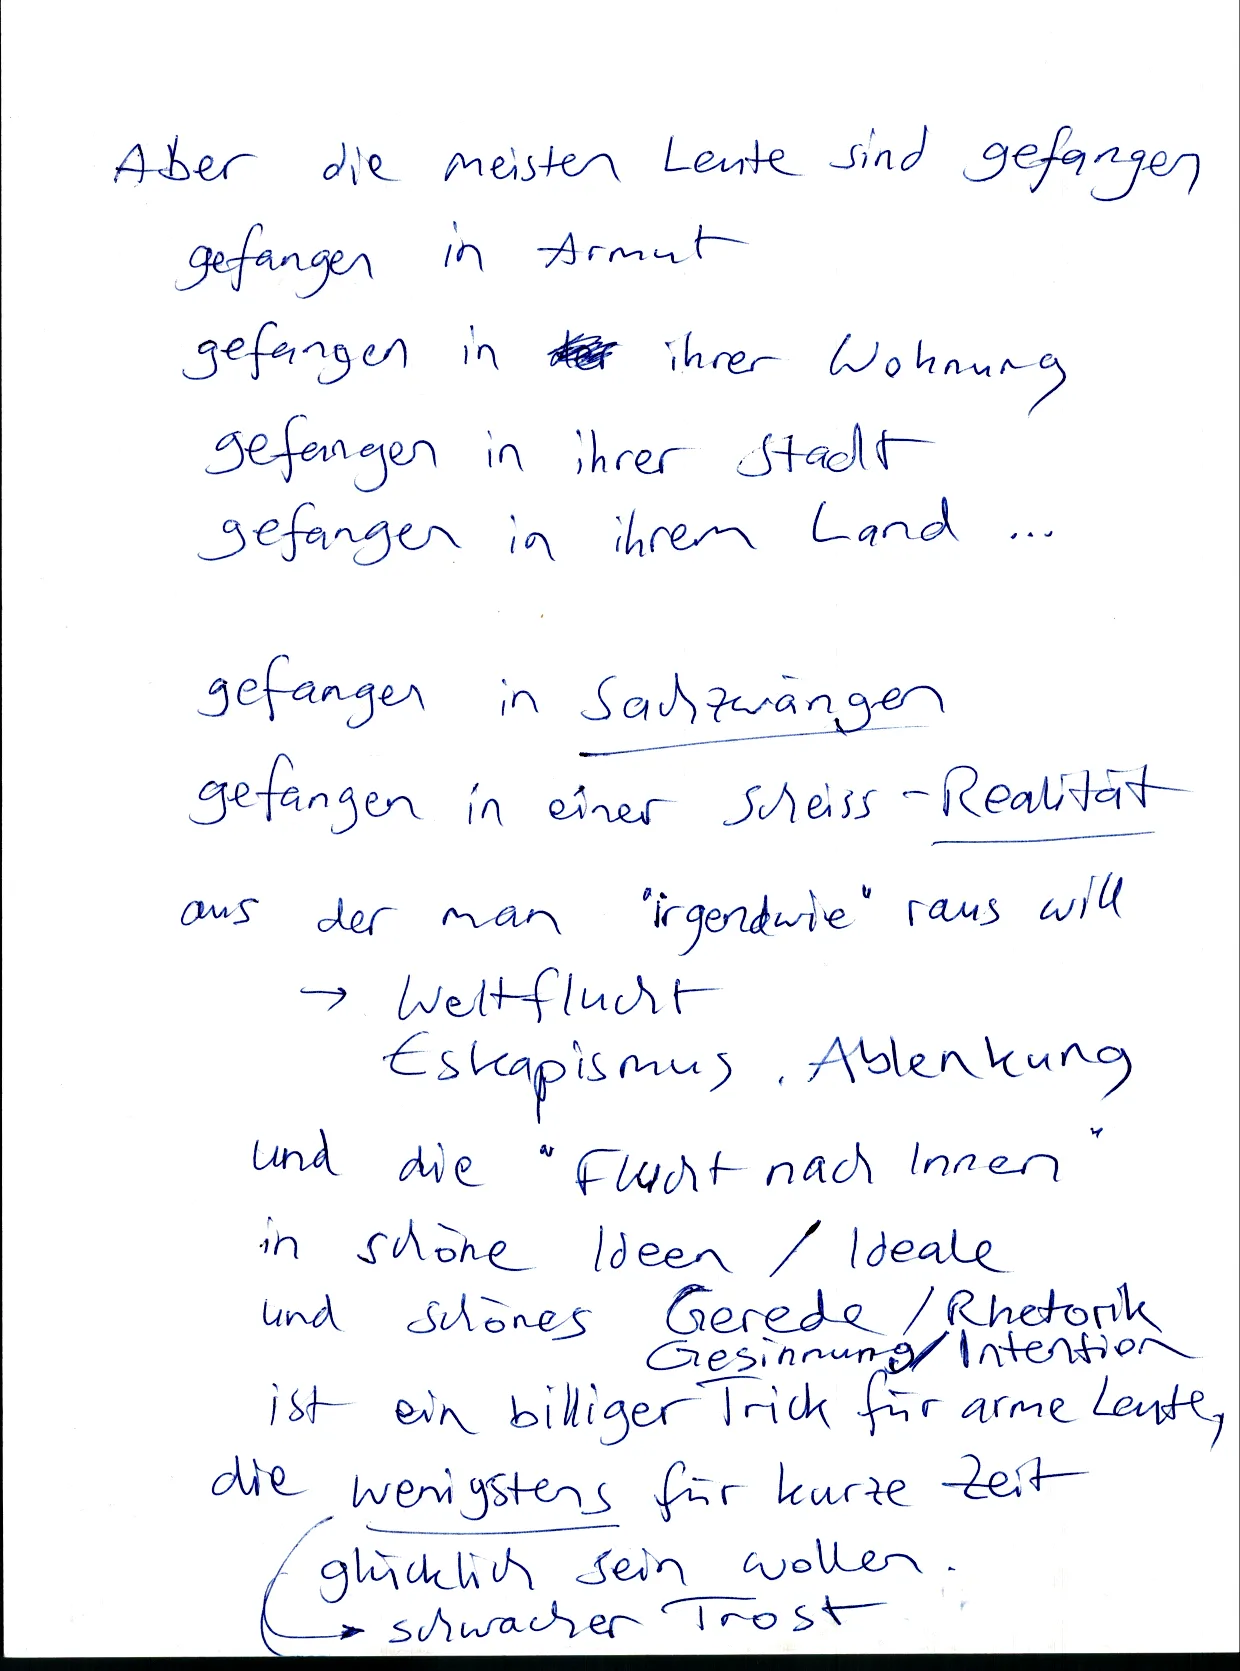 Aber die meisten Leute sind gefangen
gefangen in Armut
gefangen in ihrer Wohnung
gefangen in ihrer Stadt
gefangen in ihrem Land ...
gefangen in Sachzwängen
gefangen in einer scheiss - Realität
aus der man "irgendwie" raus will
→ Weltflucht
Eskapismus, Ablenkung
und die "Flucht nach Innen"
in schöne Ideen / Ideale
und schönes Gerede / Rhetorik
Gesinnung / Intention
ist ein billiger Trick für arme Leute,
die wenigstens für kurze Zeit
glücklich sein wollen.
→ schwacher Trost